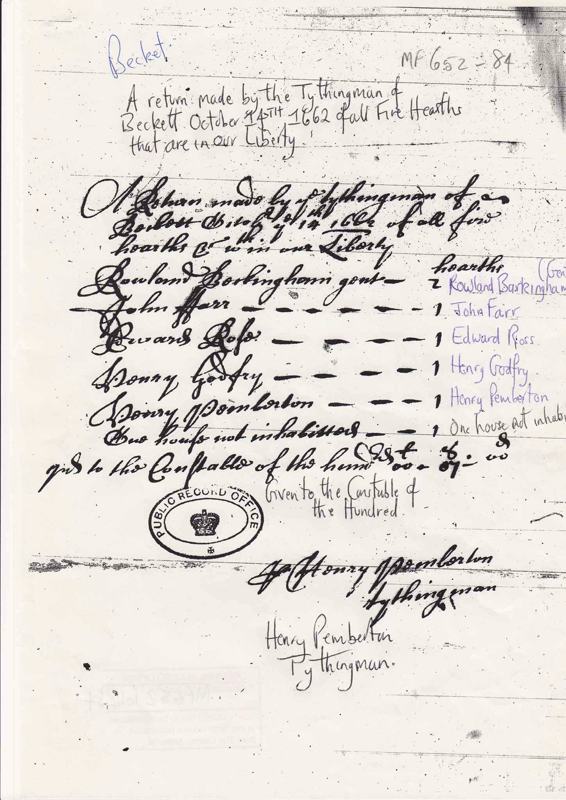 Becket.
MF 652 - 84
A return made by the Tythingman of
Beckett October 14TH 1662 of all Fire Hearths
that are in our Liberty.
A Return made by ye tythingman of
Beckett ye 14th 1662 of all fire
hearths in our Liberty
hearths
Rowland Barkingham gent — 2 Rowland Barkingham
John Farr - - - - - 1 John Farr.
Edward Rose - - - - 1 Edward Ross.
Henry Godfry - - - - 1 Henry Godfry.
Henry Pemberton - - - 1 Henry Pemberton
One house not inhabitted - - 1 One house not inhabi
to the Constable of the
Given to the Constable of
the Hundred
PUBLIC RECORD OFFICE
Henry Pemberton
tythingman
Henry Pemberton
Tythingman.